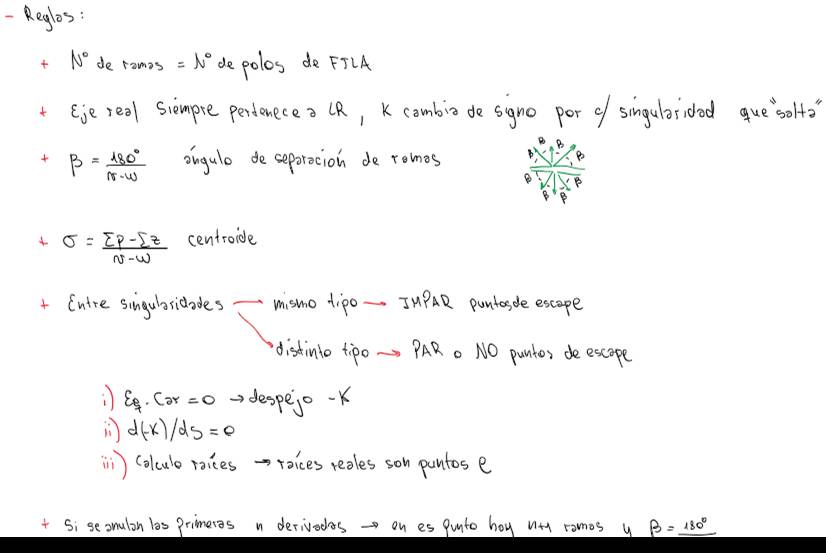 - Reglas:
+ Nº de ramas = Nº de polos de FTLA
+ Eje real siempre pertenece a LR, K cambia de signo por c/ singularidad que "salta"
+ β = 180º / n-w ángulo de separación de ramas
β β β β β β β β
+ σ = Σp - Σz / n-w centroide
+ Entre singularidades → mismo tipo → IMPAR puntos de escape
→ distinto tipo → PAR o NO puntos de escape
i) Eq. Car = 0 → despejo -K
ii) d(-K)/ds = 0
iii) Calculo raíces → raíces reales son puntos e
+ Si se anulan las primeras n derivadas → en es punto hay n+1 ramas y β = 180º